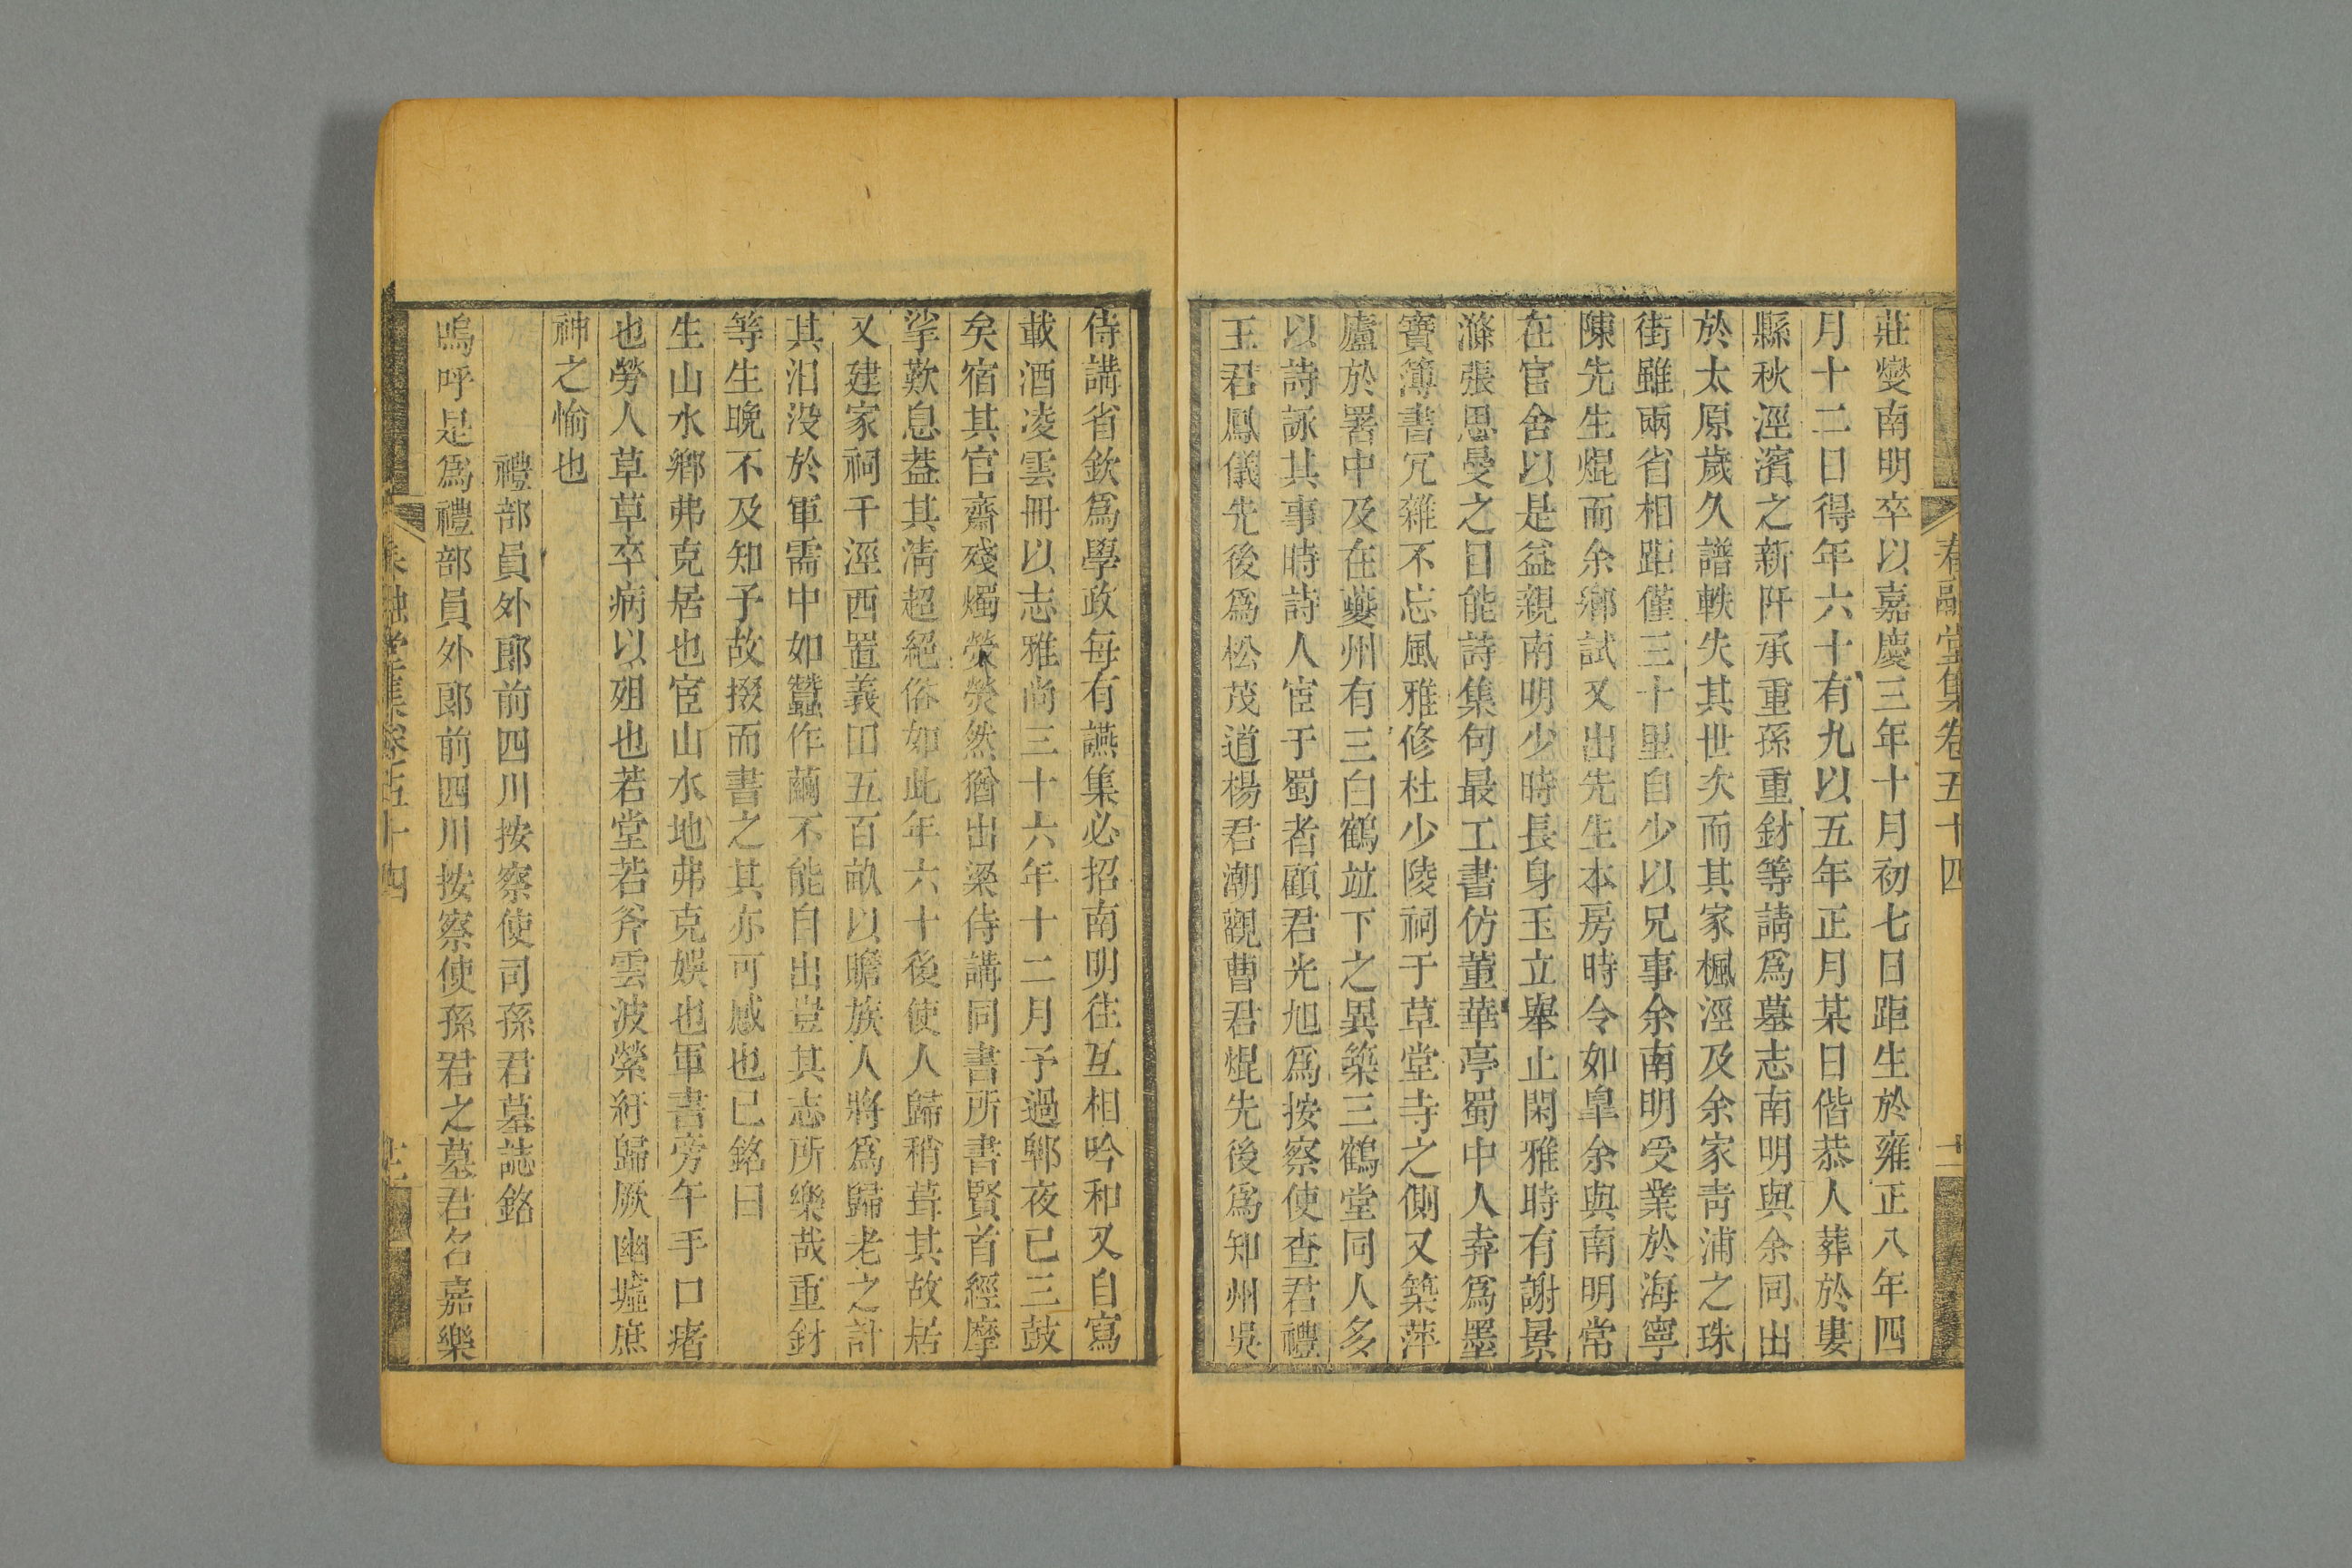 春融堂集卷五十四
莊燮南明卒以嘉慶三年十月初七日距生於雍正八年四
月十二日得年六十有九以五年正月某日偕恭人葬於婁
縣秋涇濱之新阡承重孫重釪等請爲墓志南明與余同出
於太原歲久譜軼失其世次而其家楓涇及余家青浦之珠
街雖兩省相距僅三十里自少以兄事余南明受業於海寧
陳先生焜而余鄉試又出先生本房時令如皐余與南明常
在官舍以是益親南明少時長身玉立舉止閑雅時有謝景
滌張思曼之目能詩集句最工書仿董華亭蜀中人葬爲墨
寶簿書冗雜不忘風雅修杜少陵祠于草堂寺之側又築萍
廬於署中及在夔州有三白鶴竝下之異築三鶴堂同人多
以詩詠其事時詩人宦于蜀者顧君光旭爲按察使查君禮
王君鳳儀先後爲松茂道楊君潮觀曹君焜先後爲知州吳
侍講省欽爲學政每有讌集必招南明往互相吟和又自寫
載酒凌雲冊以志雅尚三十六年十二月予過郫夜已三鼓
矣宿其官齋殘燭熒熒然猶出梁侍講同書所書賢首經摩
挲歎息葢其淸超絕俗如此年六十後使人歸稍葺其故居
又建家祠于涇西置義田五百畝以贍族人將爲歸老之計
其汨沒於軍需中如蠶作繭不能自出豈其志所樂哉重釪
等生晚不及知予故掇而書之其亦可感也已銘曰
生山水鄉弗克居也宦山水地弗克娛也軍書旁午手口瘏
也勞人草草卒病以殂也若堂若斧雲波縈紆歸厥幽墟庶
神之愉也
禮部員外郎前四川按察使司孫君墓誌銘
嗚呼是爲禮部員外郎前四川按察使孫君之墓君名嘉樂
融堂集卷五十四